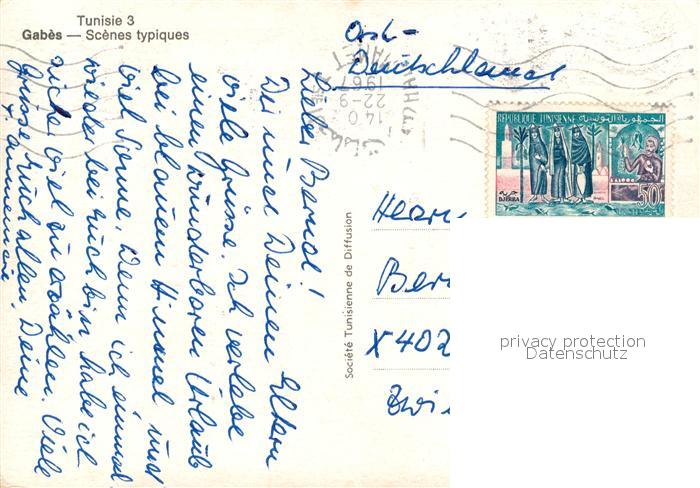 Tunisie 3
Gabès — Scènes typiques
Ost-
Deutschland
14-0
22-9
1967
REPUBLIQUE TUNISIENNE الجمهورية التونسية
DJERBA
50
Lieber Bernd!
Dir und Deinen Eltern
viele Grüsse. Ich verlebe
einen wunderbaren Urlaub
bei blauen Himmel und
viel Sonne. Wenn ich einmal
wieder bei Euch bin habe ich
sicher viel zu erzählen. Viele
Grüsse Euch allen Deine
Annemarie
Société Tunisienne de Diffusion
Herrn
Ber
X402
Zwi
privacy protection
Datenschutz